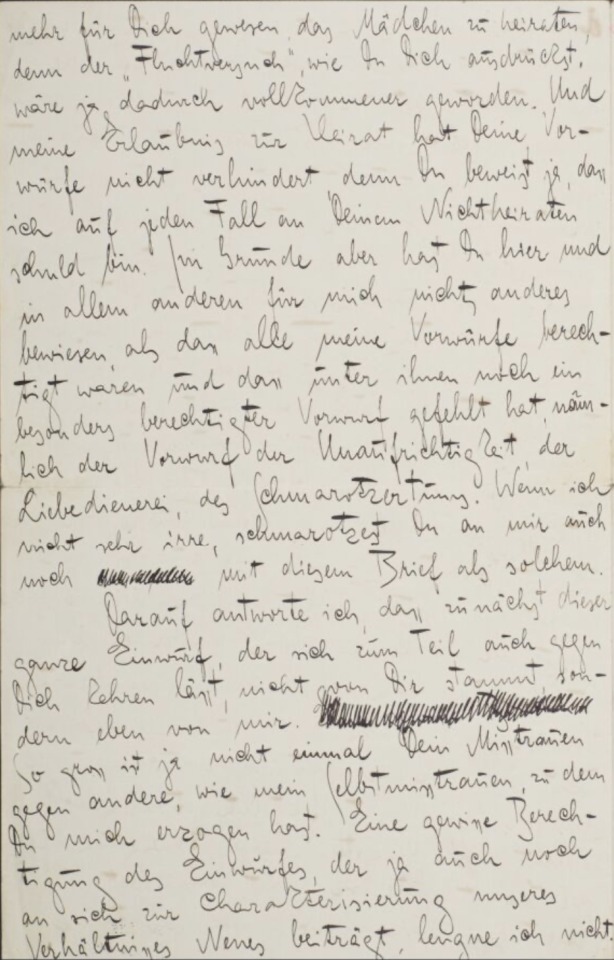 mehr für Dich gewesen, das Mädchen zu heiraten,
denn der „Fluchtversuch", wie Du Dich ausdrückst,
wäre ja dadurch vollkommener geworden. Und
meine Erlaubnis zur Heirat hat Deine Vor-
würfe nicht verhindert, denn Du beweist ja, dass
ich auf jeden Fall an Deinem Nichtheiraten
schuld bin. Im Grunde aber hast Du hier und
in allem anderen für mich nichts anderes
bewiesen, als dass alle meine Vorwürfe berech-
tigt waren und dass unter ihnen noch ein
besonders berechtigter Vorwurf gefehlt hat, näm-
lich der Vorwurf der Unaufrichtigkeit, der
Liebedienerei, des Schmarotzertums. Wenn ich
nicht sehr irre, schmarotzest Du an mir auch
noch mit diesem Brief als solchem.
Darauf antworte ich, dass zunächst dieser
ganze Einwurf, der sich zum Teil auch gegen
Dich kehren lässt, nicht von Dir stammt son-
dern eben von mir.
So gross ist ja nicht einmal Dein Misstrauen
gegen andere, wie mein Selbstmisstrauen, zu dem
Du mich erzogen hast. Eine gewisse Berech-
tigung des Einwurfes, der ja auch noch
an sich zur Charakterisierung unseres
Verhältnisses Neues beiträgt, leugne ich nicht.